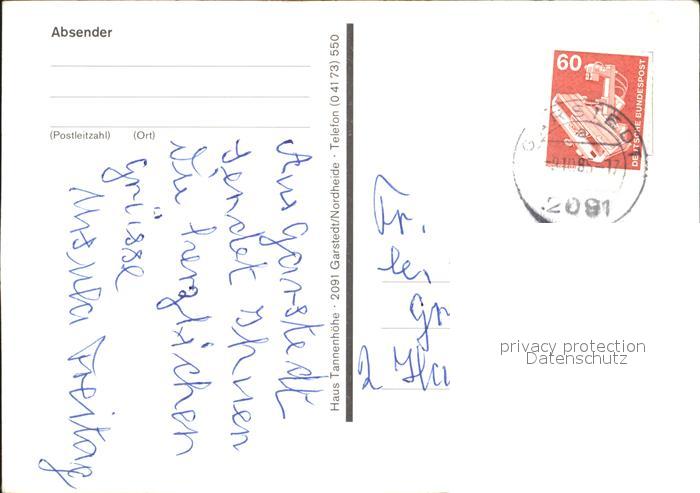 Absender
(Postleitzahl) (Ort)
Aus Garstedt
sendet Ihnen
die herzlichen
Grüsse
Ursula Freitag
Haus Tannenhöhe · 2091 Garstedt/Nordheide · Telefon (0 41 73) 550
60
DEUTSCHE BUNDESPOST
2091
Fr.
2 Ha
privacy protection
Datenschutz